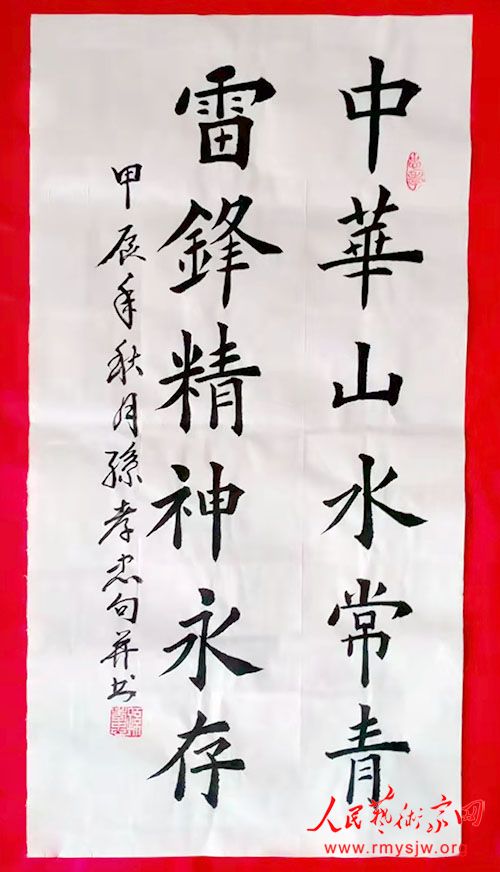 中華山水常青
雷鋒精神永存
甲辰年秋月孫孝忠句并书
人民藝術家网
www.rmysjw.org